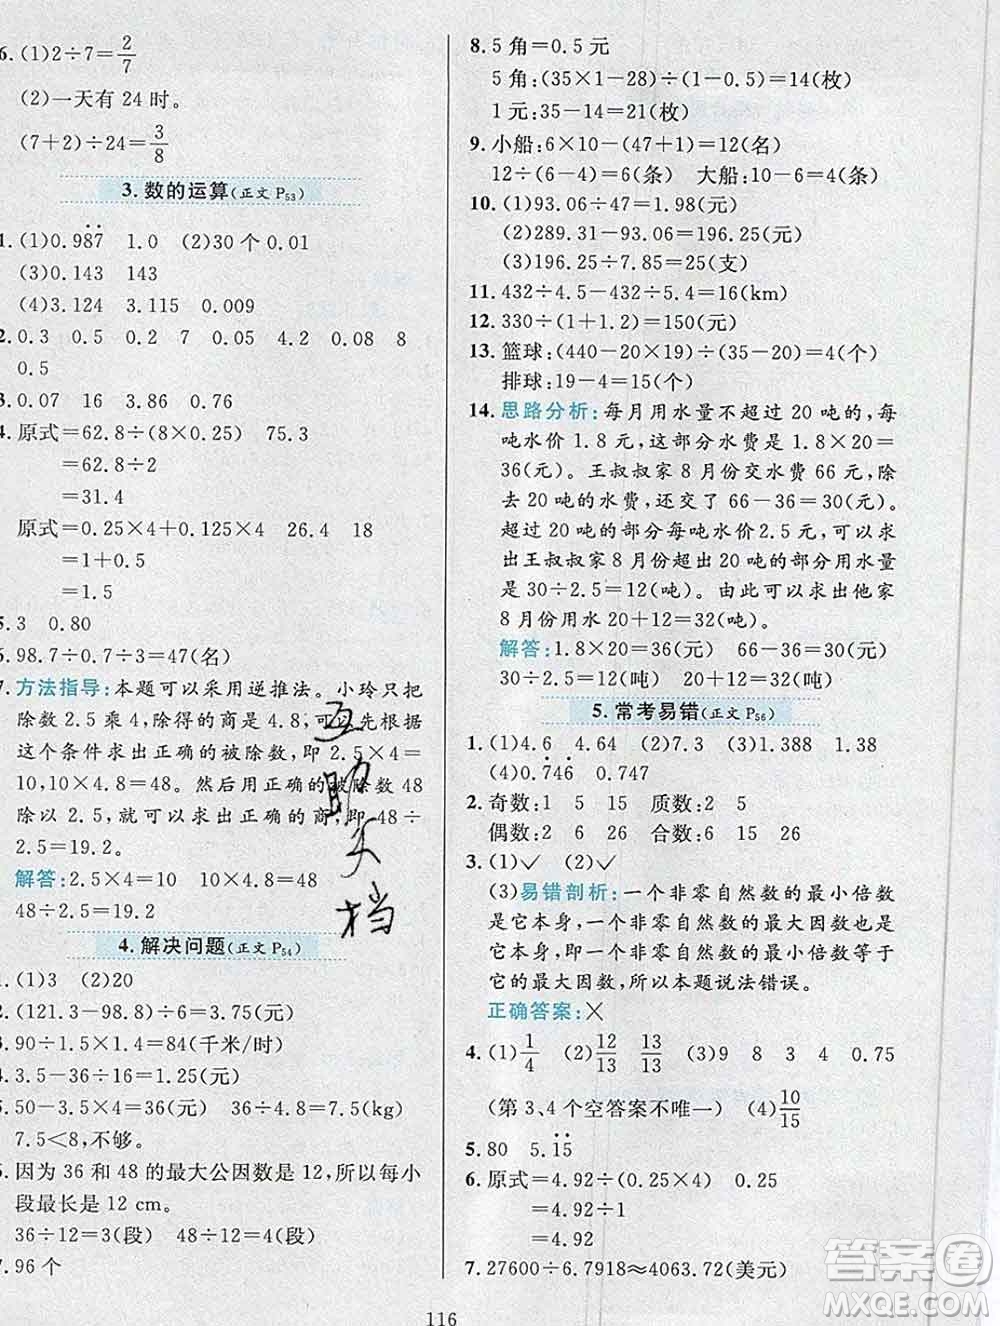 6.(1)2÷7=2/7
(2)一天有24时。
(7+2)÷24=3/8
3.数的运算(正文P53)
1.(1)0.98̇7̇ 1.0 (2)30个0.01
(3)0.143 143
(4)3.124 3.115 0.009
2.0.3 0.5 0.2 7 0.05 4.2 0.08 8
0.5
3.0.07 16 3.86 0.76
4.原式=62.8÷(8×0.25) 75.3
=62.8÷2
=31.4
原式=0.25×4+0.125×4 26.4 18
=1+0.5
=1.5
5.3 0.80
6.98.7÷0.7÷3=47(名)
7.方法指导:本题可以采用逆推法。小玲只把
除数2.5乘4,除得的商是4.8,可以先根据
这个条件求出正确的被除数,即2.5×4=
10,10×4.8=48。然后用正确的被除数48
除以2.5,就可以求出正确的商,即48÷
2.5=19.2。
解答:2.5×4=10 10×4.8=48
48÷2.5=19.2
4.解决问题(正文P54)
1.(1)3 (2)20
2.(121.3-98.8)÷6=3.75(元)
3.90÷1.5×1.4=84(千米/时)
4.3.5-36÷16=1.25(元)
5.50-3.5×4=36(元) 36÷4.8=7.5(kg)
7.5<8,不够。
6.因为36和48的最大公因数是12,所以每小
段最长是12 cm。
36÷12=3(段) 48÷12=4(段)
7.96个
8.5角=0.5元
5角:(35×1-28)÷(1-0.5)=14(枚)
1元:35-14=21(枚)
9.小船:6×10-(47+1)=12(名)
12÷(6-4)=6(条) 大船:10-6=4(条)
10.(1)93.06÷47=1.98(元)
(2)289.31-93.06=196.25(元)
(3)196.25÷7.85=25(支)
11.432÷4.5-432÷5.4=16(km)
12.330÷(1+1.2)=150(元)
13.篮球:(440-20×19)÷(35-20)=4(个)
排球:19-4=15(个)
14.思路分析:每月用水量不超过20吨的,每
吨水价1.8元,这部分水费是1.8×20=
36(元)。王叔叔家8月份交水费66元,除
去20吨的水费,还交了66-36=30(元)。
超过20吨的部分每吨水价2.5元,可以求
出王叔叔家8月份超出20吨的部分用水量
是30÷2.5=12(吨)。由此可以求出他家
8月份用水20+12=32(吨)。
解答:1.8×20=36(元) 66-36=30(元)
30÷2.5=12(吨) 20+12=32(吨)
5.常考易错(正文P56)
1.(1)4.6 4.64 (2)7.3 (3)1.388 1.38
(4)0.7̇46̇ 0.747
2.奇数:1 5 15 质数:2 5
偶数:2 6 26 合数:6 15 26
3.(1)✓ (2)✓
(3)易错剖析:一个非零自然数的最小倍数
是它本身,一个非零自然数的最大因数也
是它本身,即一个非零自然数的最小倍数等于
它的最大因数,所以本题说法错误。
正确答案:×
4.(1)1/4 (2)12/13 13/13 (3)9 8 3 4 0.75
(第3、4个空答案不唯一) (4)10/15
5.80 5.1̇5̇
6.原式=4.92÷(4×0.25) 0.25
=4.92÷1
=4.92
7.27600÷6.7918≈4063.72(美元)
116
互助文档
答案圈
MXQE.COM